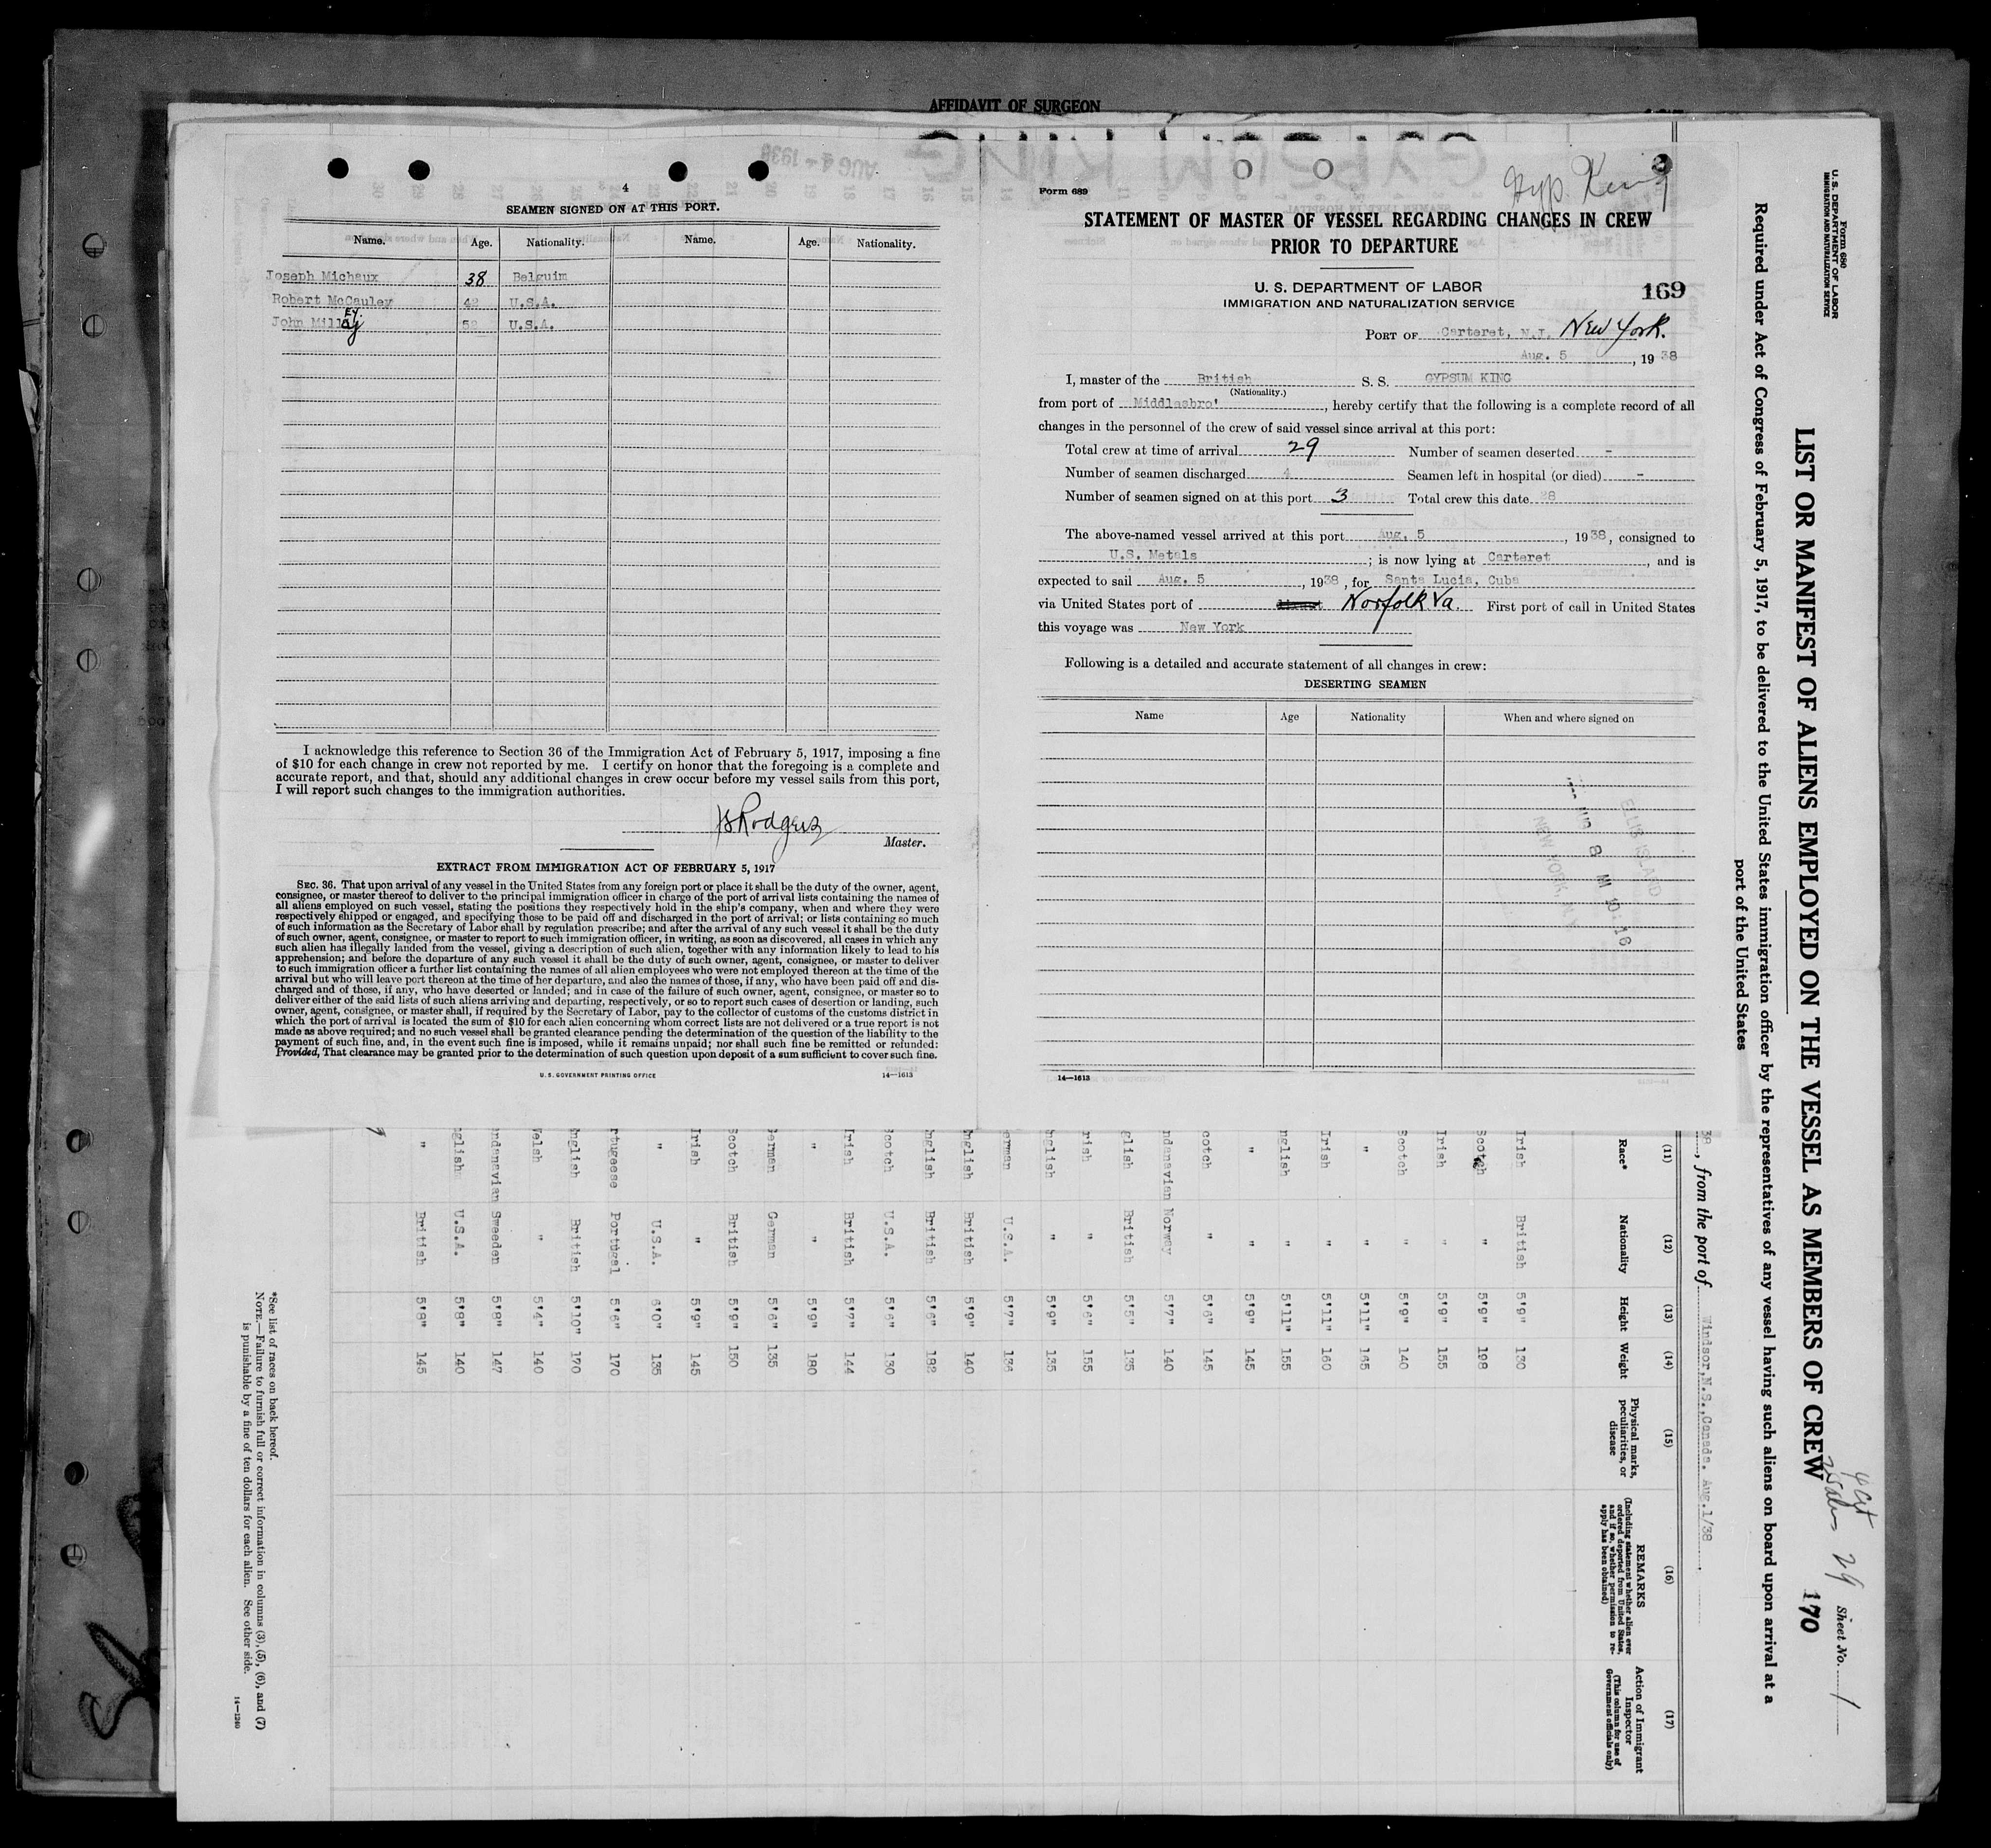 AFFIDAVIT OF SURGEON
4
SEAMEN SIGNED ON AT THIS PORT.
Name. Age. Nationality. Name. Age. Nationality.
Joseph Michaux 38 Belguim
Robert McCauley 42 U.S.A.
John Milley U.S.A.
I acknowledge this reference to Section 36 of the Immigration Act of February 5, 1917, imposing a fine
of $10 for each change in crew not reported by me. I certify on honor that the foregoing is a complete and
accurate report, and that, should any additional changes in crew occur before my vessel sails from this port,
I will report such changes to the immigration authorities.
Rodgers
Master.
EXTRACT FROM IMMIGRATION ACT OF FEBRUARY 5, 1917
SEC. 36. That upon arrival of any vessel in the United States from any foreign port or place it shall be the duty of the owner, agent,
consignee, or master thereof to deliver to the principal immigration officer in charge of the port of arrival lists containing the names of
all aliens employed on such vessel, stating the positions they respectively hold in the ship's company, when and where they were
respectively shipped or engaged, and specifying those to be paid off and discharged in the port of arrival; or lists containing so much
of such information as the Secretary of Labor shall by regulation prescribe; and after the arrival of any such vessel it shall be the duty
of such owner, agent, consignee, or master to report to such immigration officer, in writing, as soon as discovered, all cases in which any
such alien has illegally landed from the vessel, giving a description of such alien, together with any information likely to lead to his
apprehension; and before the departure of any such vessel it shall be the duty of such owner, agent, consignee, or master to deliver
to such immigration officer a further list containing the names of all alien employees who were not employed thereon at the time of the
arrival but who will leave port thereon at the time of her departure, and also the names of those, if any, who have been paid off and dis-
charged and of those, if any, who have deserted or landed; and in case of the failure of such owner, agent, consignee, or master so to
deliver either of the said lists of such aliens arriving and departing, respectively, or so to report such cases of desertion or landing, such
owner, agent, consignee, or master shall, if required by the Secretary of Labor, pay to the collector of customs of the customs district in
which the port of arrival is located the sum of $10 for each alien concerning whom correct lists are not delivered or a true report is not
made as above required; and no such vessel shall be granted clearance pending the determination of the question of the liability to the
payment of such fine, and, in the event such fine is imposed, while it remains unpaid; nor shall such fine be remitted or refunded:
Provided, That clearance may be granted prior to the determination of such question upon deposit of a sum sufficient to cover such fine.
U. S. GOVERNMENT PRINTING OFFICE 14—1613
Form 689
Gyp. King
STATEMENT OF MASTER OF VESSEL REGARDING CHANGES IN CREW
PRIOR TO DEPARTURE
U. S. DEPARTMENT OF LABOR
IMMIGRATION AND NATURALIZATION SERVICE
169
PORT OF Carteret, N.J. New York.
Aug. 5, 1938
I, master of the British S. S. GYPSUM KING
(Nationality.)
from port of Middlesbro', hereby certify that the following is a complete record of all
changes in the personnel of the crew of said vessel since arrival at this port:
Total crew at time of arrival 29 Number of seamen deserted -
Number of seamen discharged 4 Seamen left in hospital (or died) -
Number of seamen signed on at this port 3 Total crew this date 28
The above-named vessel arrived at this port Aug. 5, 1938, consigned to
U.S. Metals; is now lying at Carteret, and is
expected to sail Aug. 5, 1938, for Santa Lucia, Cuba
via United States port of Norfolk Va. First port of call in United States
this voyage was New York
Following is a detailed and accurate statement of all changes in crew:
DESERTING SEAMEN
Name Age Nationality When and where signed on
ELLIS ISLAND
AUG 8 AM 10:16
NEW YORK, N.Y.
14—1613
Form 680
U. S. DEPARTMENT OF LABOR
IMMIGRATION AND NATURALIZATION SERVICE
LIST OR MANIFEST OF ALIENS EMPLOYED ON THE VESSEL AS MEMBERS OF CREW
29
Sheet No. 1
170
Required under Act of Congress of February 5, 1917, to be delivered to the United States immigration officer by the representatives of any vessel having such aliens on board upon arrival at a
port of the United States
38, from the port of Windsor, N.S., Canada. Aug.1/38
(11) (12) (13) (14) (15) (16) (17)
Race* Nationality Height Weight Physical marks, peculiarities, or disease
REMARKS
(Including statement whether alien ever ordered deported from United States, and if so, whether permission to re-apply has been obtained)
Action of Immigrant Inspector
(This column for use of Government officials only)
Irish British 5'9" 130
Scotch " 5'9" 198
Irish " 5'9" 155
Scotch " 5'9" 140
" " 5'11" 165
Irish " 5'11" 160
nglish " 5'11" 155
" " 5'9" 145
cotch " 5'6" 145
ndanavian Norway 5'7" 140
glish British 5'5" 135
rish " 5'6" 155
nglish " 5'9" 135
erman U.S.A. 5'7" 136
nglish British 5'9" 140
nglish British 5'6" 192
cotch U.S.A. 5'6" 130
rish British 5'7" 144
" " 5'9" 180
German German 5'6" 135
Scotch British 5'9" 150
Irish " 5'9" 145
" U.S.A. 6'0" 135
rtugeese Portugal 5'6" 170
nglish British 5'10" 170
Welsh " 5'4" 140
ndanavian Sweeden 5'8" 147
nglish U.S.A. 5'8" 140
" British 5'8" 145
*See list of races on back hereof.
NOTE.—Failure to furnish full or correct information in columns (3), (5), (6), and (7)
is punishable by a fine of ten dollars for each alien. See other side.
14—1240